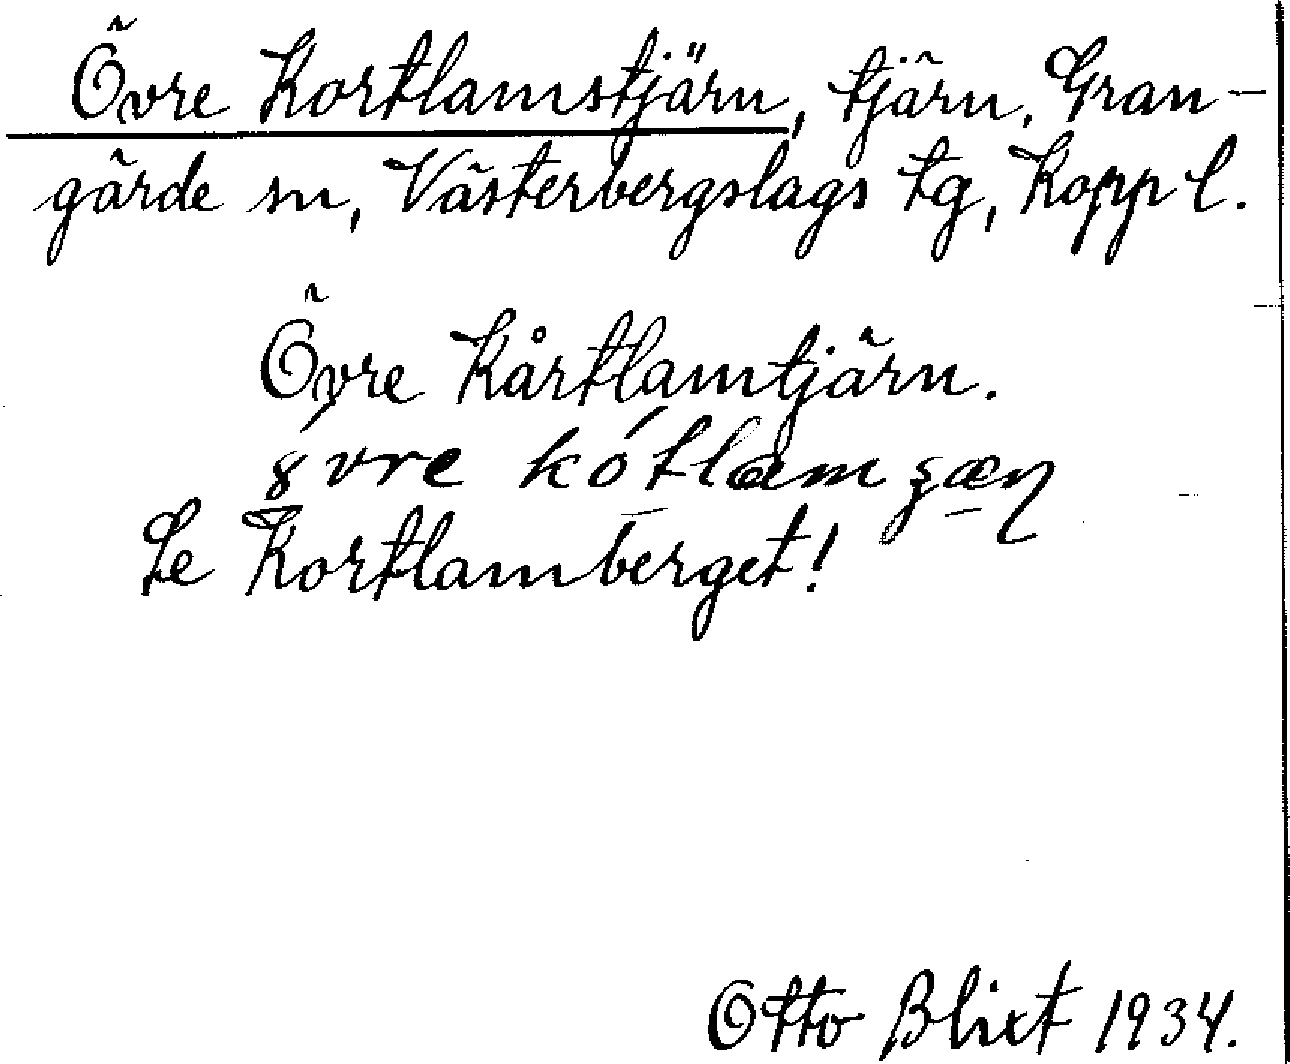 Övre Kortlamstjärn, tjärn, Gran-
gärde sn, Västerbergslags tg, Kopp l.
Övre Kårtlamtjärn.
Se Kortlamberget!
Otto Blixt 1934.